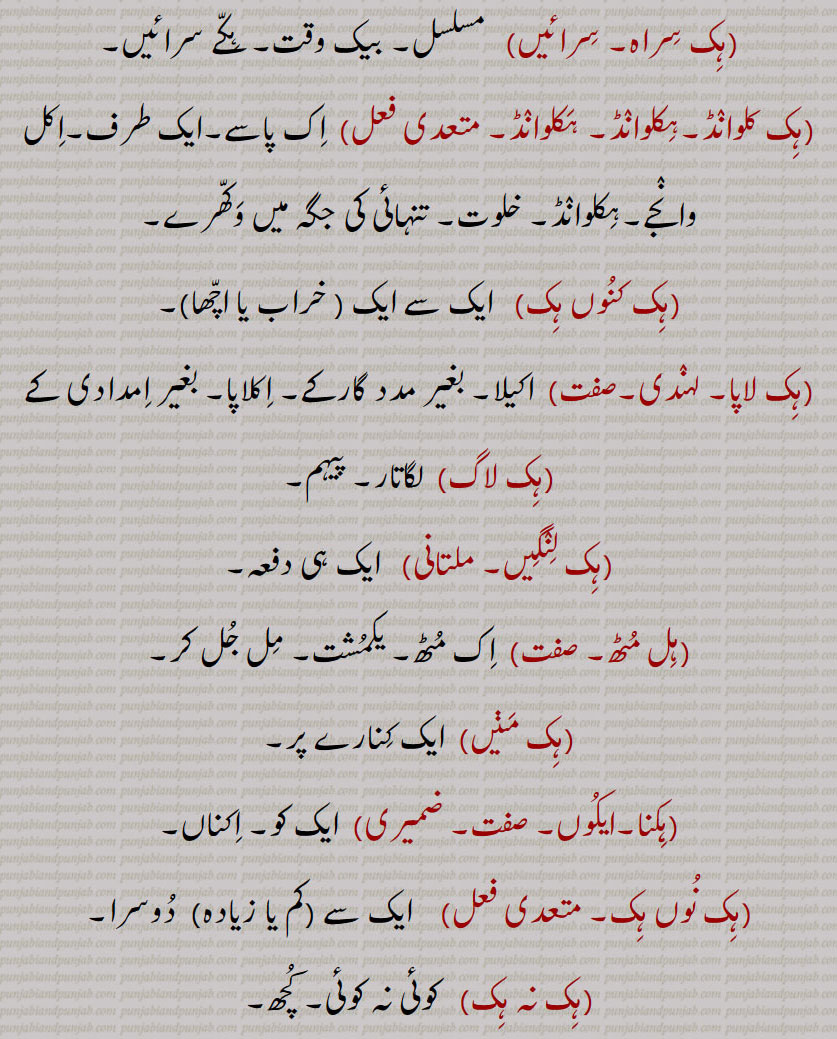 (ہِک سِراہ۔ سِرائیں) مسلسل۔ بیک وقت۔ ہِکّے سرائیں۔
(ہِک کلوانْڈ۔ہِکلوانْڈ۔ ہَکلوانْڈ۔ متعدی فعل) اِک پاسے۔ایک طرف۔اِکل
وانْجے۔ہِکلوانْڈ۔ خلوت۔ تنہائی کی جگہ میں وَکھّرے۔
(ہِک کنُوں ہِک) ایک سے ایک ( خراب یا اچّھا)۔
(ہِک لاپا۔ لہنْدی۔صفت) اکیلا۔ بغیر مدد گارکے۔ اِکلاپا۔ بغیر اِمدادی کے
(ہِک لاگ) لگاتار۔ پیہم۔
(ہِک لِنْگیں۔ ملتانی) ایک ہی دفعہ۔
(ہِل مُٹھ۔ صفت) اِک مُٹھ۔ یکمُشت۔ مِل جُل کر۔
(ہِک مَنْیں) ایک کِنارے پر۔
(ہِکنا۔ایکُوں۔ صفت۔ ضمیری) ایک کو۔ اِکناں۔
(ہِک نُوں ہِک۔ متعدی فعل) ایک سے (کم یا زیادہ) دُوسرا۔
(ہِک نہ ہِک) کوئی نہ کوئی۔ کُچھ۔